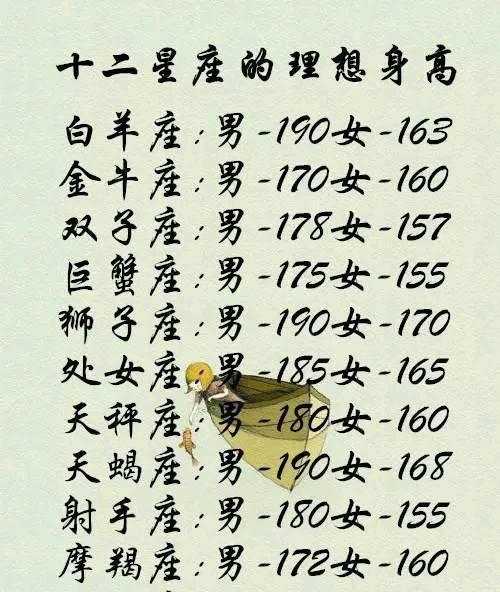 十二星座的理想身高
白羊座:男-190女-163
金牛座:男-170女-160
双子座:男-178女-157
巨蟹座:男-175女-155
狮子座:男-190女-170
处女座:男-185女-165
天秤座:男-180女-160
天蝎座:男-190女-168
射手座:男-180女-155
摩羯座:男-172女-160